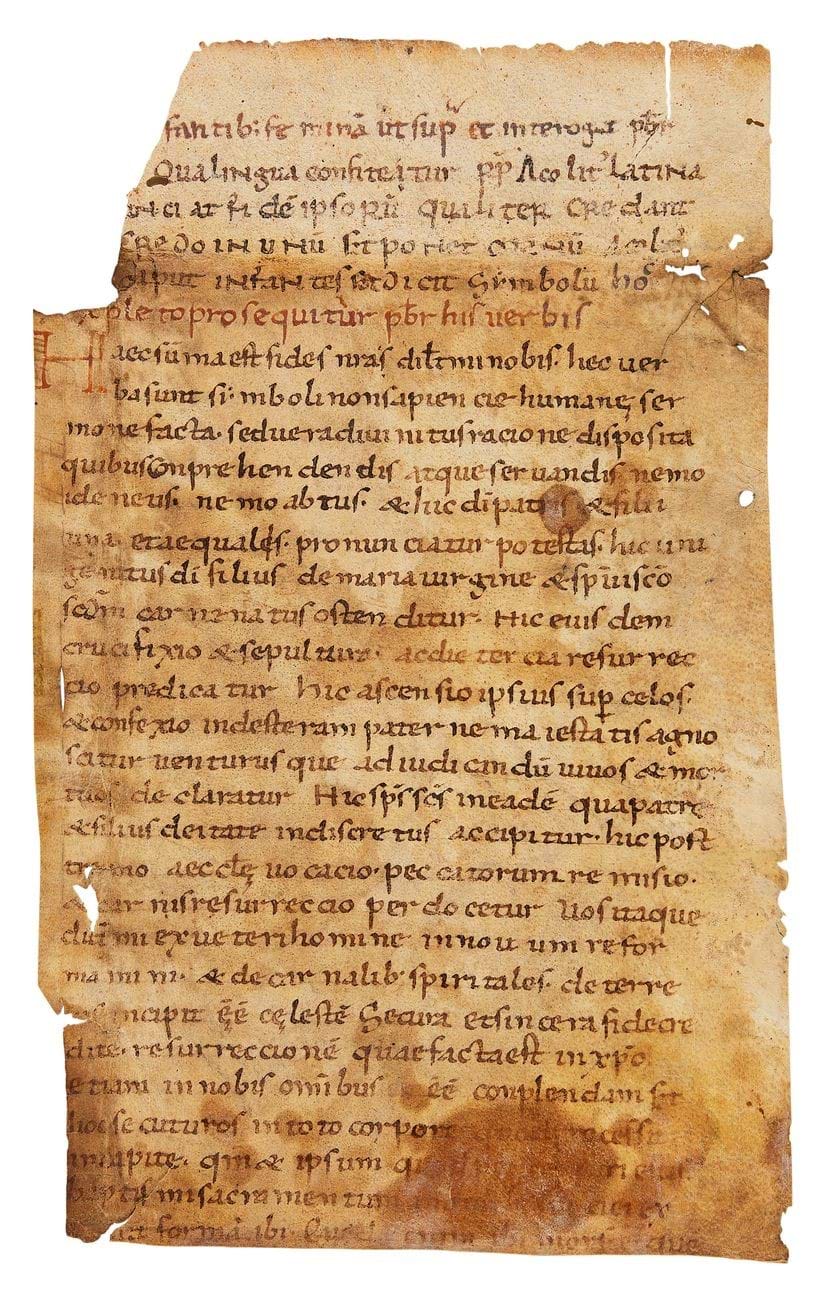 fantib: fe minā ut sup et interogat pbr
Qua lingua confiteatur Rp Acolit Latina
anciat fidē ipsorū qualiter credant
Credo in unū Et ponet
caput infantes Et dicit Symbolū hoc
pleto prosequitur pbr his verbis
Haec summa est fides nras diltmi nobis. hec uer
ba sunt simboli non sapiencie humanę ser
mone facta. sed uera diuinitus racione disposita
quibus conprehendendis atque seruandis nemo
ideneus. nemo abtus. & hic dī patris & filii
una. et aequales. pronunciatur potestas. hic uni
genitus di filius de maria uirgine & spū sco
scdm carne natus ostenditur. Hic eiusdem
crucifixio & sepultura. ac die tercia resurrec
cio predicatur hic ascensio ipsius sup celos.
& confexio in desteram paterne maiestatis agno
scitur uenturusque ad iudicandū uiuos & mor
tuos declaratur Hic sps scs in eadē qua patre
& filius deitate indiscretus accipitur. hic post
tremo aecclę uocacio. peccatorum remisio.
& carnis resurreccio perdocetur Uos itaque
diltmi ex ueteri homine in nouum refor
mamini. & de carnalib spiritales. de terre
incipit ēē celestē Secura et sincera fide cre
dite. resurreccionē quae facta est in xpo
etiam in nobis omībus ēē conplendam Et
hoc secuturos in toto corpore
incapite. qm & ipsum
baptismi sacramentum
formā ibi